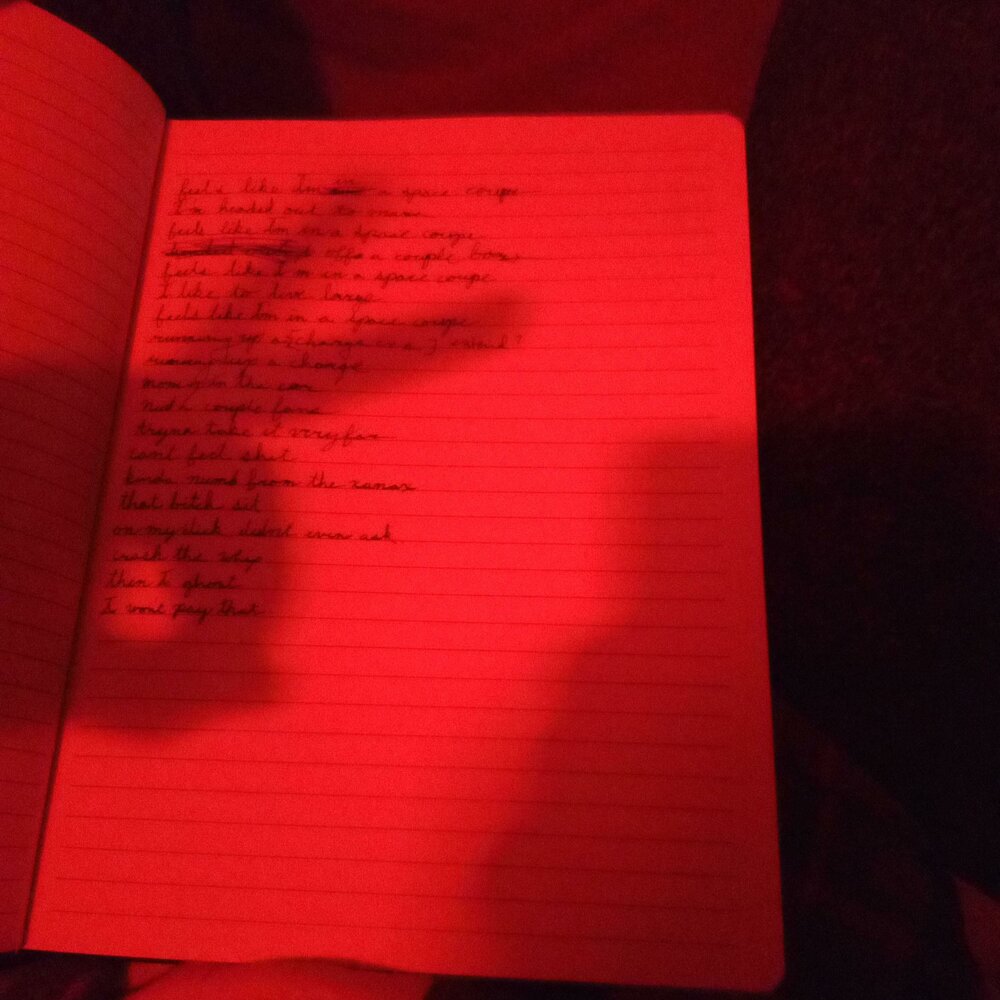 feels like I'm in a space coupe
I'm headed out to mars
feels like I'm in a space coupe
offa couple bars
feels like I'm in a space coupe
I like to live large
feels like I'm in a space coupe
running up a charge
running up a charge
in the car
couple
tryna take it very far
cant feel shit
kinda numb from the xanax
that bitch sit
on my dick didnt even ask
crash the whip
then I ghost
I wont pay that